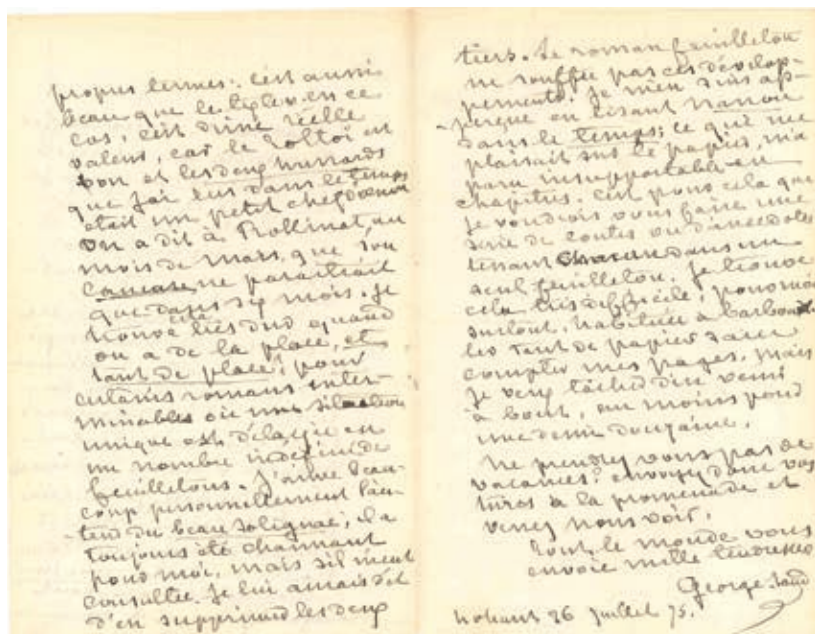 propres termes: c'est aussi
beau que le Tigler. en ce
cas, c'est d'une réelle
valeur, car le Tolstoï est
bon et les deux hussards
que j'ai lus dans le temps
était un petit chef d'œuvre
On a dit à Rollinat, au
mois de Mars, que son
Caucase ne paraitrait
que dans six mois. Je
trouve cela très dur quand
on a de la place, et
tant de place! pour
certains romans inter-
minables où une situation
unique est délayée en
un nombre indéfini de
feuilletons. J'aime beau-
coup personnellement l'au-
teur du beau Solignac; il a
toujours été charmant
pour moi, mais s'il m'eut
consultée, je lui aurais dit
d'en supprimer les deux
tiers. Le roman feuilleton
ne souffre pas ces dévelop-
pements. Je m'en suis ap-
perçue en lisant Nanon
dans le temps; ce qui me
plaisait sur le papier, m'a
paru insupportable en
chapitres. C'est pour cela que
je voudrois vous faire une
série de contes ou d'anecdotes
tenant chacun dans un
seul feuilleton. Je trouve
cela très difficile, pour moi
surtout, habituée à barbouil-
ler tant de papier sans
compter mes pages, mais
je veux tâcher d'en venir
à bout, au moins pour
une demi douzaine.
Ne prenez vous pas de
vacances? envoyez donc vos
à la promenade et
venez nous voir.
Tout le monde vous
envoie mille tendresses
George Sand
Nohant 26 juillet 75.